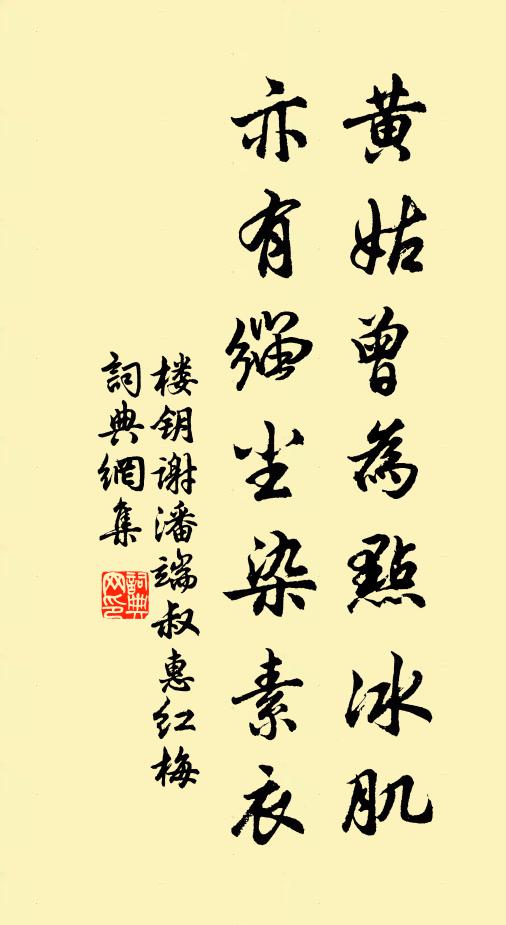 黄姑曾為點冰肌
亦有緇尘染素衣
楼钥谢潘端叔惠红梅
詞典網集
詞典
网印